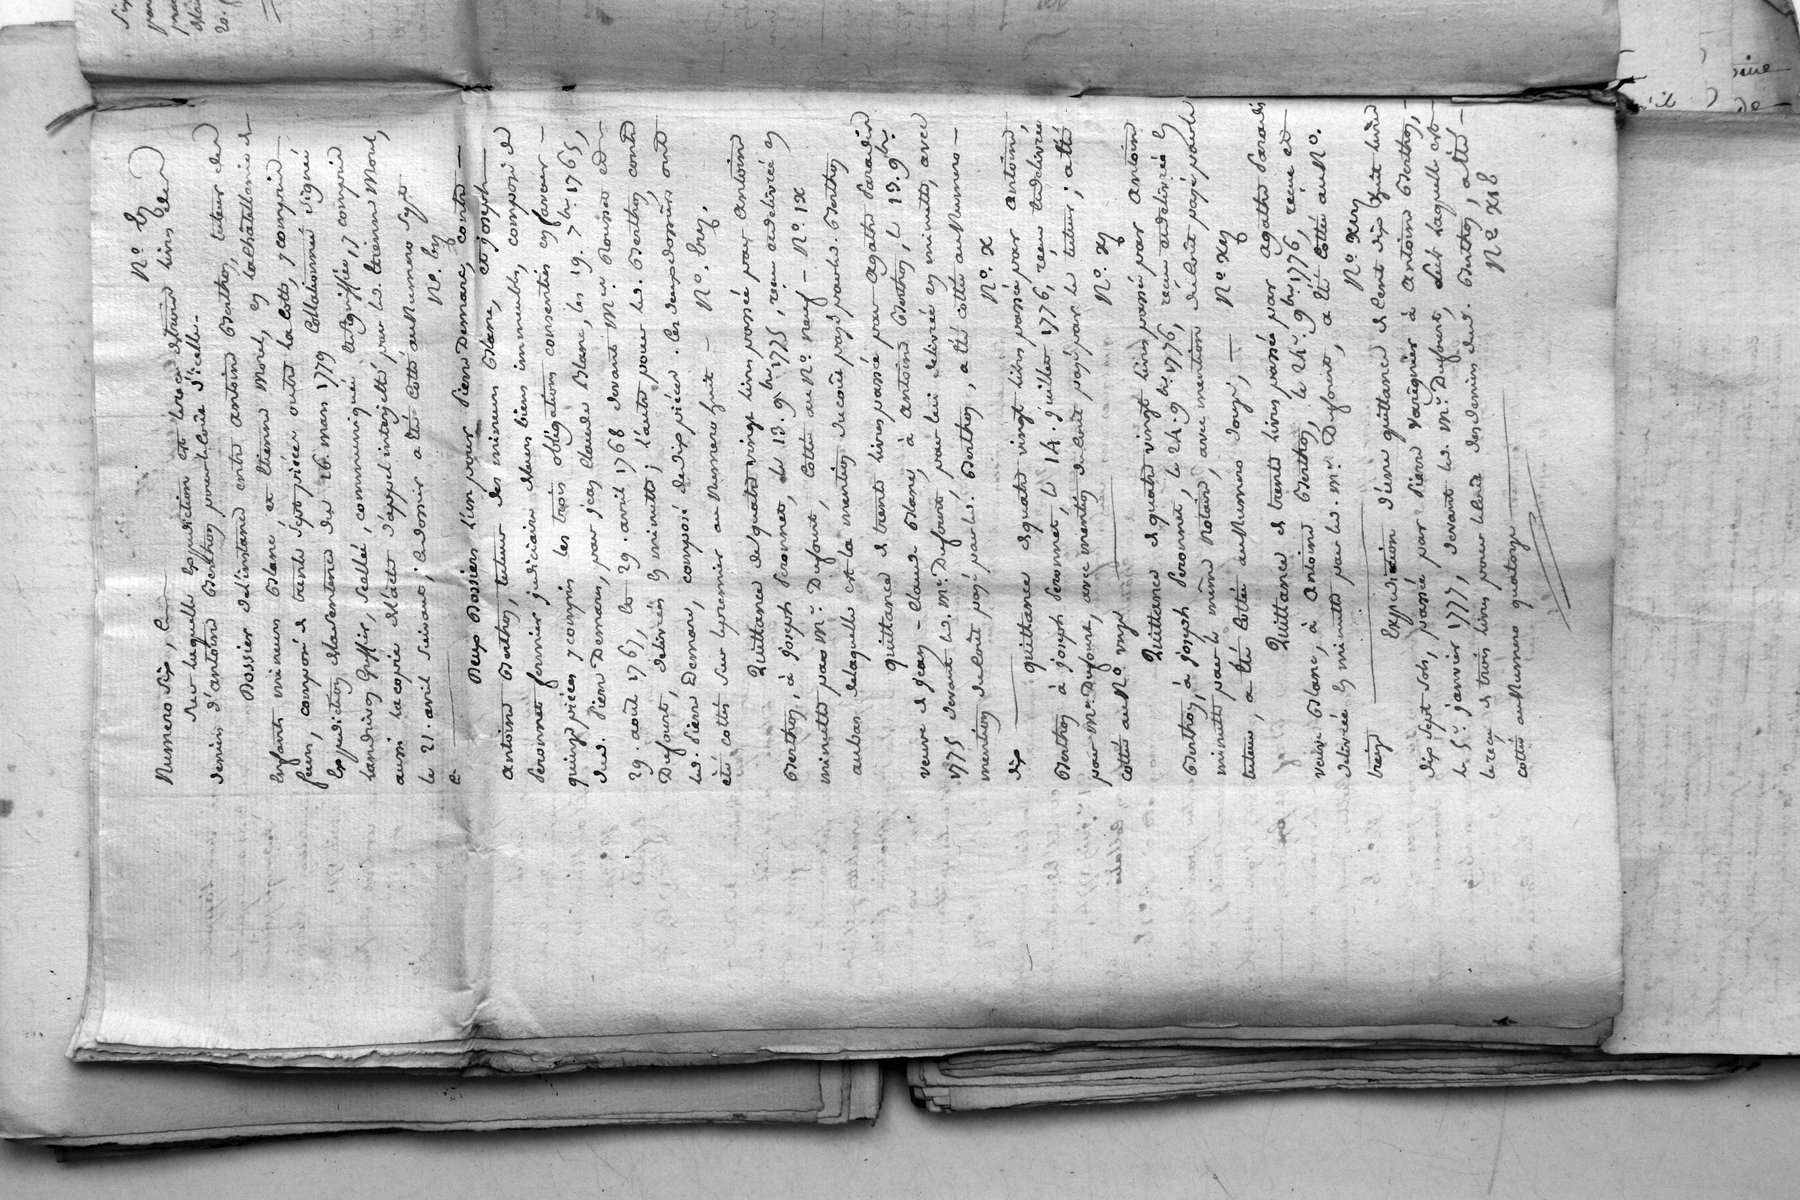 N.º vj
Numero six, cy
Sur laquelle Expedition est le recu de trois livres
denier d'antoine Berthon pour le coût d'icelle.
Dossier de l'instance entre antoine Berthon, tuteur des
Enfants mineurs Blanc, et Etienne Morel, en la Chatellanie de
feurs, composé de trente sept pièces outre la cotte, y compris
Expedition de la Sentence du 26. mars 1779 Collationné signé
Landrivon Greffier, scellée, communiquée et signiffiée, y compris
aussi la copie de l'acte d'appel interjetté par led. Etienne Morel,
le 21. avril suivant; ce dossier a été cotté au Numero Sept
N.º vij
Deux Dossiers l'un pour Pierre Demare, contre
antoine Berthon, tuteur des mineurs Blanc, et joseph
Peronnet fermier judiciaire de leurs biens immeubles, composé de
quinze pièces y compris les trois obligations consenties en faveur
dud. Pierre Demare, par jean Claude Blanc, les 19. 7.bre 1765,
29. aout 1765, et 29. avril 1768 devant M.re Mousse et
Dufourt, delivrés en minutte; l'autre pour led. Berthon contre
led. Pierre Demare, composé de dix pièces. Ces deux dossiers ont
été cottés sur le premier au Numero huit — N.º viij.
Quittance de quatre vingt livres passée par antoine
Berthon, à joseph Peronnet, du 13. 9.bre 1775, reçue et delivrée en
minutte par M.e Dufourt, Cotté au N.º neuf — N.º ix
au bas de laquelle est la mention du coût payé par led. Berthon
quittance de trente livres passée par agathe Paradis
veuve de jean-Claude Blanc, à antoine Berthon, le 13. 9.bre
1775 devant led. M.e Dufourt, par lui delivrée en minutte, avec
mention du coût payé par led. Berthon, a été cottée au Numero
dix N.º x
quittance de quatre vingt livres passée par antoine
Berthon à joseph Peronnet, le 14. juillet 1776, recue et delivrée
par M.e Dufourt, avec mention du coût payé par le tuteur; a été
cottée au N.º onze N.º xj
Quittance de quatre vingt livres passée par antoine
Berthon, à joseph Peronnet, le 24. 9.bre 1776, recue et delivrée en
minutte par le même Notaire, avec mention du coût payé par le
tuteur, a été Cottée au Numero douze, — N.º xij
Quittance de trente livres passée par agathe Paradis
veuve Blanc, à antoine Berthon, le 24.e 9.bre 1776, recue et
delivrée en minutte par led. M.e Dufourt, a été Cottée au N.º
treize N.º xiij
Expedition d'une quittance de Cent dix huit livres
dix sept sols, passée par Pierre à antoine Berthon,
le 5.e janvier 1777, devant led. M.e Dufourt, sur laquelle est
le reçu de trois livres pour des deniers dud. Berthon, a été
cottée au Numero quatorze N.º xiv